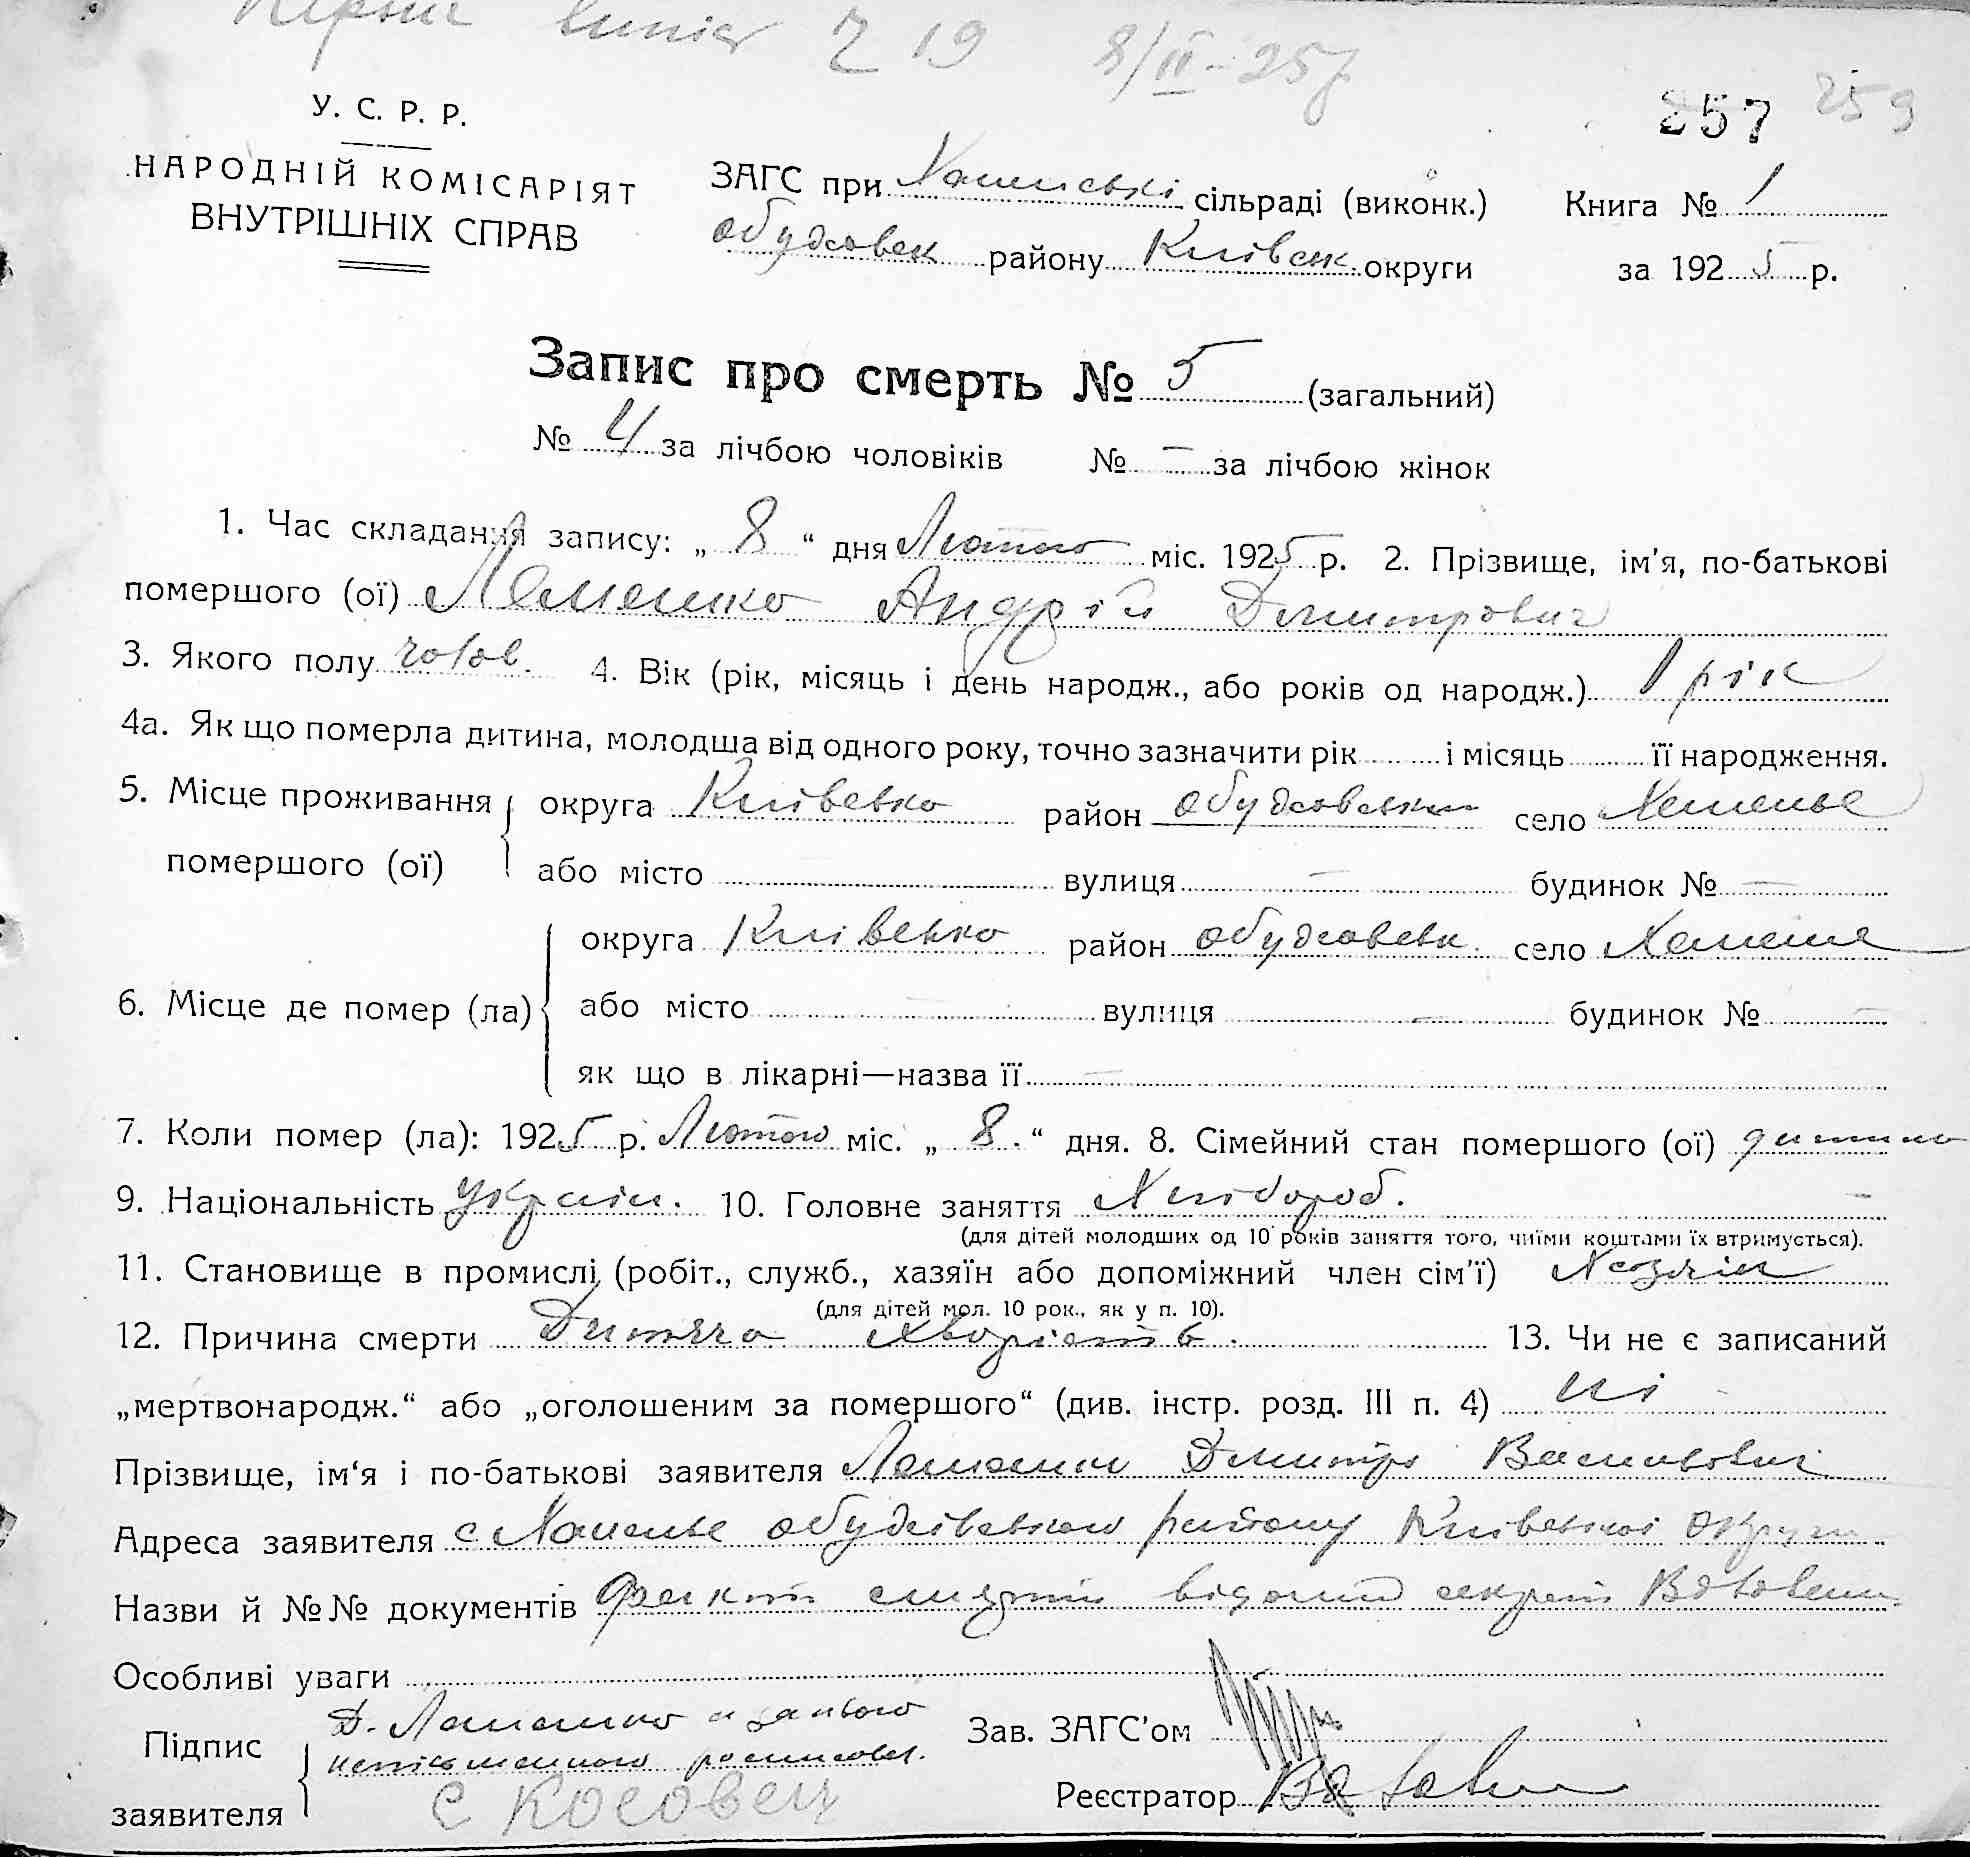 8/II-25р
257 259
У. С. Р. Р.
НАРОДНІЙ КОМІСАРІЯТ
ВНУТРІШНІХ СПРАВ
ЗАГС при сільраді (виконк.) Книга № 1
району Київськ. округи за 1925 р.
Запис про смерть № 5 (загальний)
№ 4 за лічбою чоловіків № — за лічбою жінок
1. Час складання запису: „ 8 “ дня Лютого міс. 1925 р. 2. Прізвище, ім'я, по-батькові
помершого (ої) Андрій Дмитрович
3. Якого полу чолов. 4. Вік (рік, місяць і день народж., або років од народж.) 1 рік
4а. Як що померла дитина, молодша від одного року, точно зазначити рік і місяць її народження.
5. Місце проживання округа Київсько район село
помершого (ої) або місто вулиця — будинок № —
округа Київсько район село
6. Місце де помер (ла) або місто вулиця — будинок № —
як що в лікарні—назва її —
7. Коли помер (ла): 1925 р. Лютого міс. „ 8. “ дня. 8. Сімейний стан помершого (ої) дитина
9. Національність україн. 10. Головне заняття Хлібороб. —
(для дітей молодших од 10 років заняття того, чиїми коштами їх втримується).
11. Становище в промислі (робіт., служб., хазяїн або допоміжний член сім'ї) Хозяїн
(для дітей мол. 10 рок., як у п. 10).
12. Причина смерти Дитяча хворість. 13. Чи не є записаний
„мертвонародж.“ або „оголошеним за помершого“ (див. інстр. розд. III п. 4) ні
Прізвище, ім'я і по-батькові заявителя Дмитро Васильович
Адреса заявителя с району Київської округи
Назви й №№ документів Факт смерти відомий секрет
Особливі уваги
Підпис Д. а за його Зав. ЗАГС'ом
неписьменного росписався.
заявителя Є Косовец Реєстратор